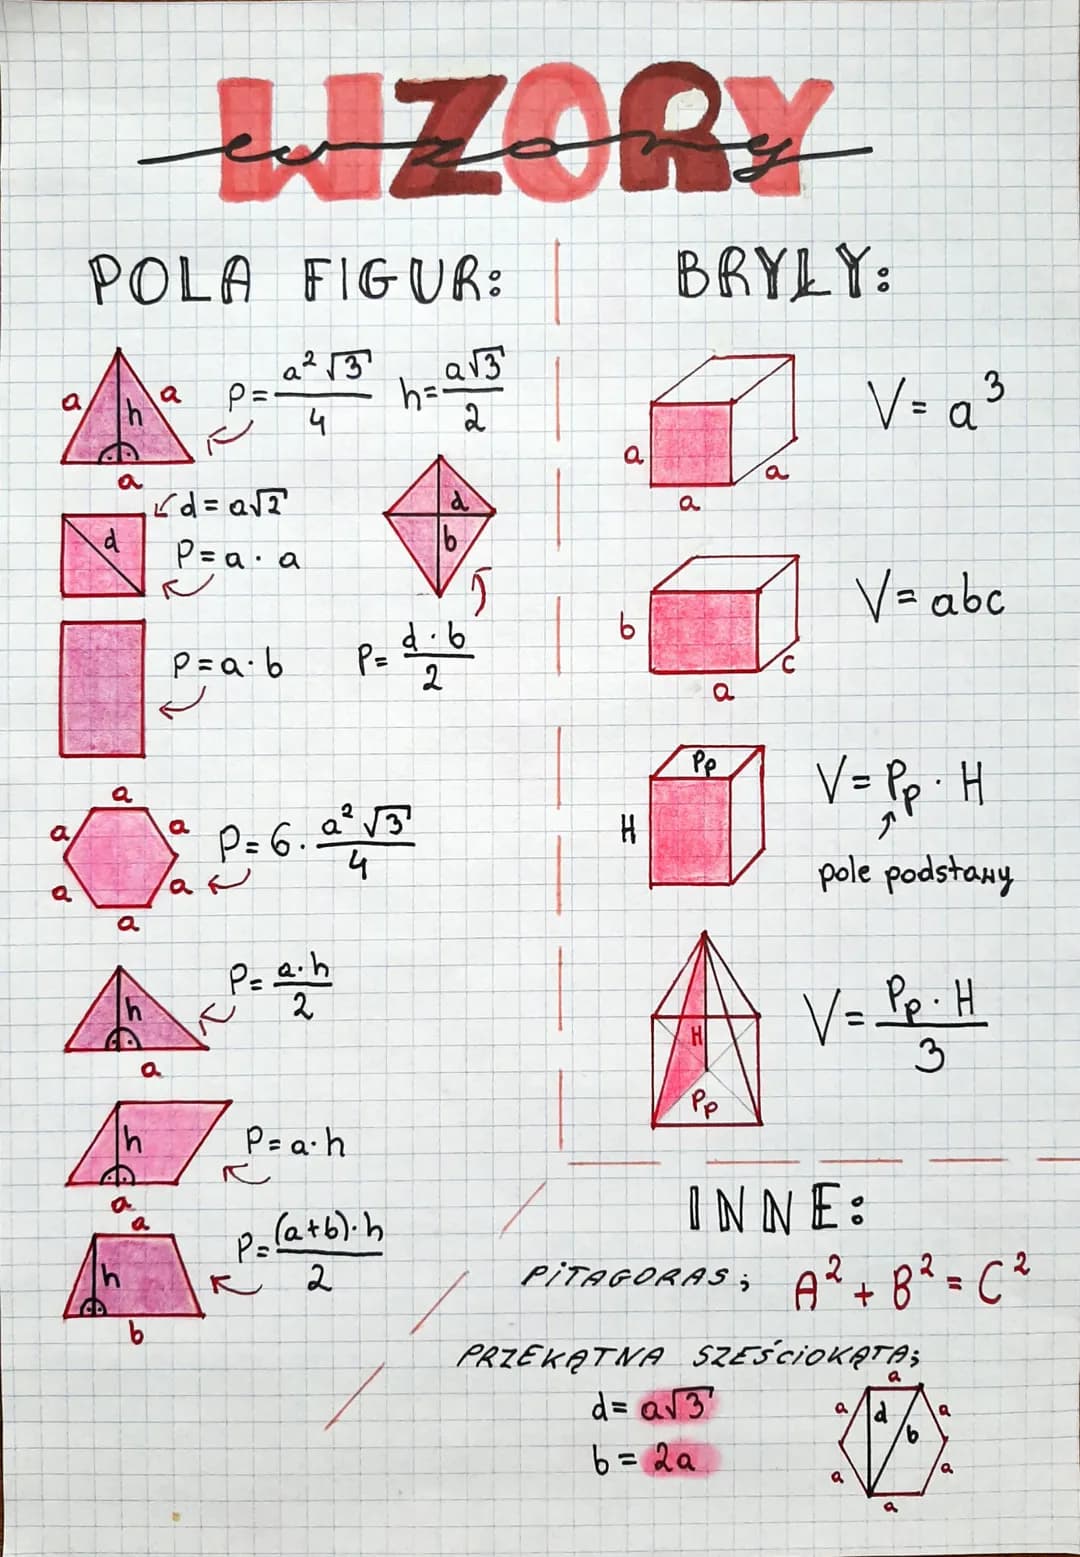 WZORY
wzory
POLA FIGUR:
a a h a
P= a²√3/4 h= a√3/2
d
d = a√2
P= a · a
d
b
P= d·b/2
P=a·b
a a a a a a
P= 6· a²√3/4
h
a
P= a·h/2
h
a
P= a·h
a
h
b
P= (a+b)·h/2
BRYŁY:
a a a
V= a³
b a c
V= abc
Pp
H
V= Pp · H
pole podstawy
H
Pp
V= Pp · H/3
INNE:
PITAGORAS; A² + B² = C²
PRZEKĄTNA SZEŚCIOKĄTA;
d= a√3
b = 2a
a a d b a a a a